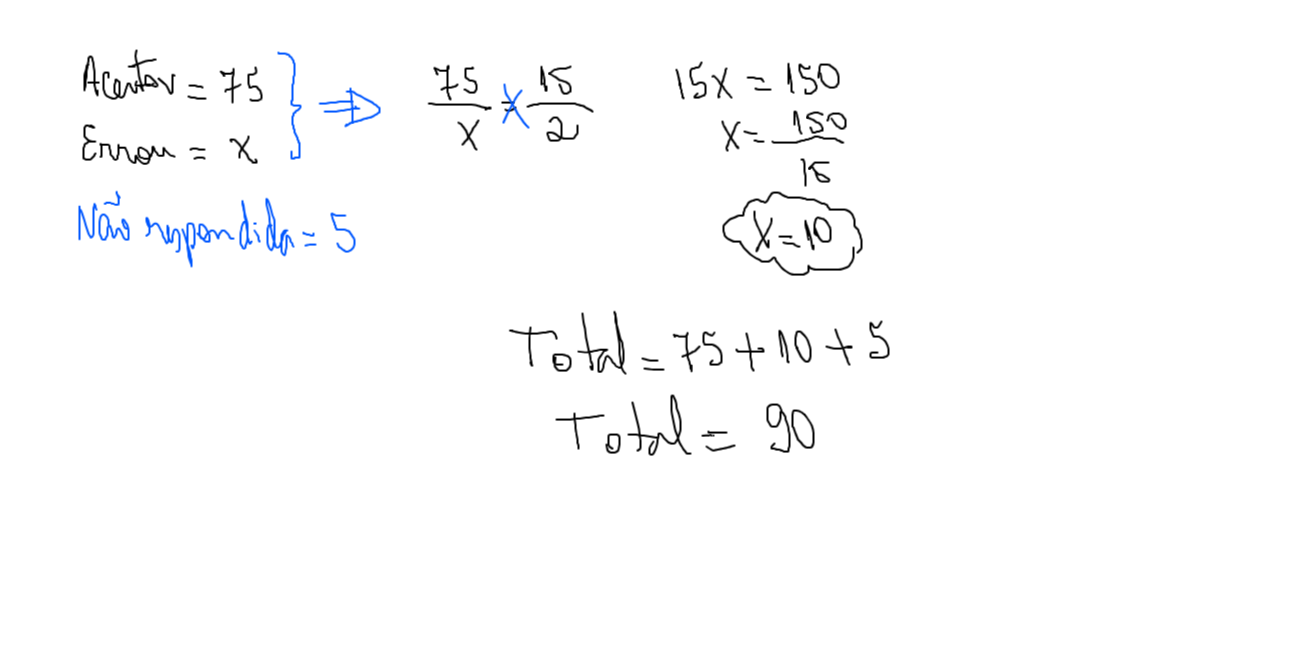 Acertou = 75
Errou = x
Não respondida = 5
75/x = 15/2
15x = 150
x = 150/15
x = 10
Total = 75 + 10 + 5
Total = 90